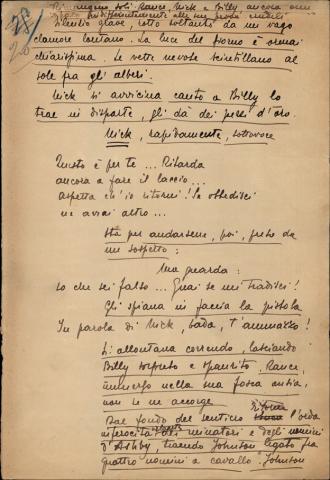 Rimangono soli Rance, Nick e Billy ancora
indifferentemente alle sue
Silenzio grave, rotto soltanto da un vago
clamore lontano. La luce del giorno è ormai
chiarissima. Le vette nevose scintillano al
sole fra gli alberi.
Nick si avvicina cauto a Billy lo
trae in disparte, gli dà dei pezzi d'oro.
Nick, rapidamente, sottovoce
Questo è per te ... Ritarda
ancora a fare il laccio ...
Aspetta ch'io ritorni! Se obbedisci
ne avrai altro ...
Sta per andarsene, poi, preso da
un sospetto:
Ma guarda:
so che sei falso ... Guai se mi tradisci!
Gli spiana in faccia la pistola
In parola di Nick, bada, t'ammazzo!
Si allontana correndo, lasciando
Billy sorpreso e spaurito. Rance,
immerso nella sua fosca ansia,
non se ne accorge
Dal fondo del sentiero ritorna l'orda
inferocita dei minatori e degli uomini
d'Ashby, traendo Johnson legato fra
quattro uomini a cavallo. Johnson